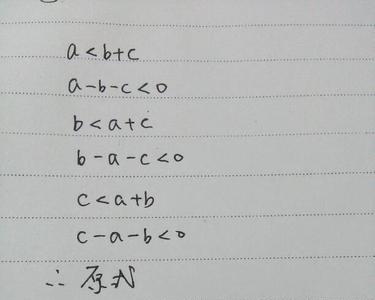 a<b+c
a-b-c<0
b<a+c
b-a-c<0
c<a+b
c-a-b<0
∴ 原式